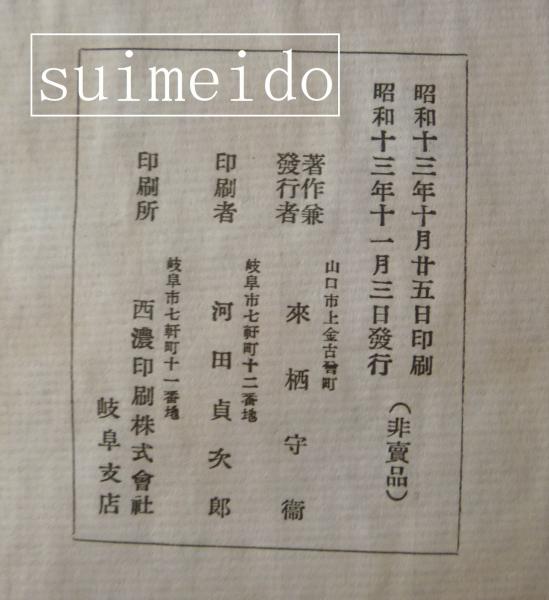 suimeido
昭和十三年十月廿五日印刷
昭和十三年十一月三日發行
(非賣品)
山口市上金古曾町
著作兼
發行者
來栖守衞
岐阜市七軒町十二番地
印刷者
河田貞次郎
岐阜市七軒町十一番地
印刷所
西濃印刷株式會社
岐阜支店